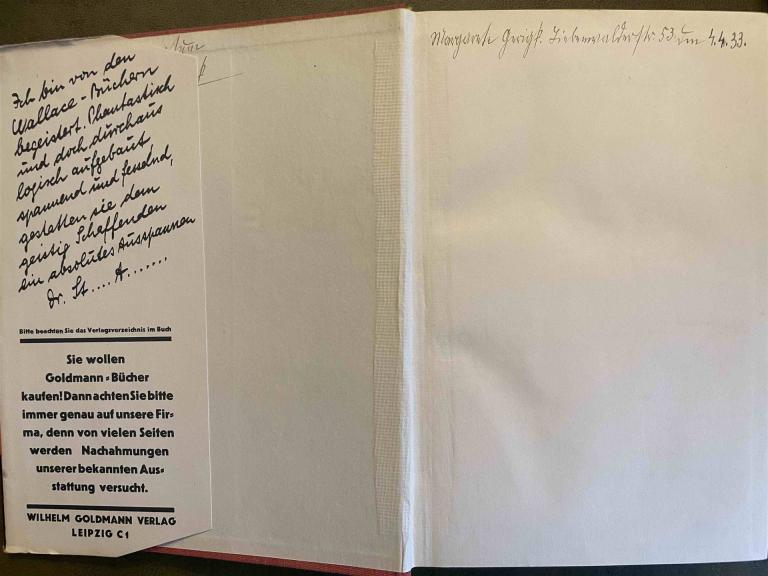 Ich bin von den
Wallace-Büchern
begeistert. Phantastisch
und doch durchaus
logisch aufgebaut,
spannend und fesselnd,
gestatten sie dem
geistig Schaffenden
ein absolutes Ausspannen
Dr. St.... A.......
Bitte beachten Sie das Verlagsverzeichnis im Buch
Sie wollen
Goldmann-Bücher
kaufen! Dann achten Sie bitte
immer genau auf unsere Fir-
ma, denn von vielen Seiten
werden Nachahmungen
unserer bekannten Aus-
stattung versucht.
WILHELM GOLDMANN VERLAG
LEIPZIG C1
Margarete Gerigk. Liebenwalderstr. 53 4.4.33.